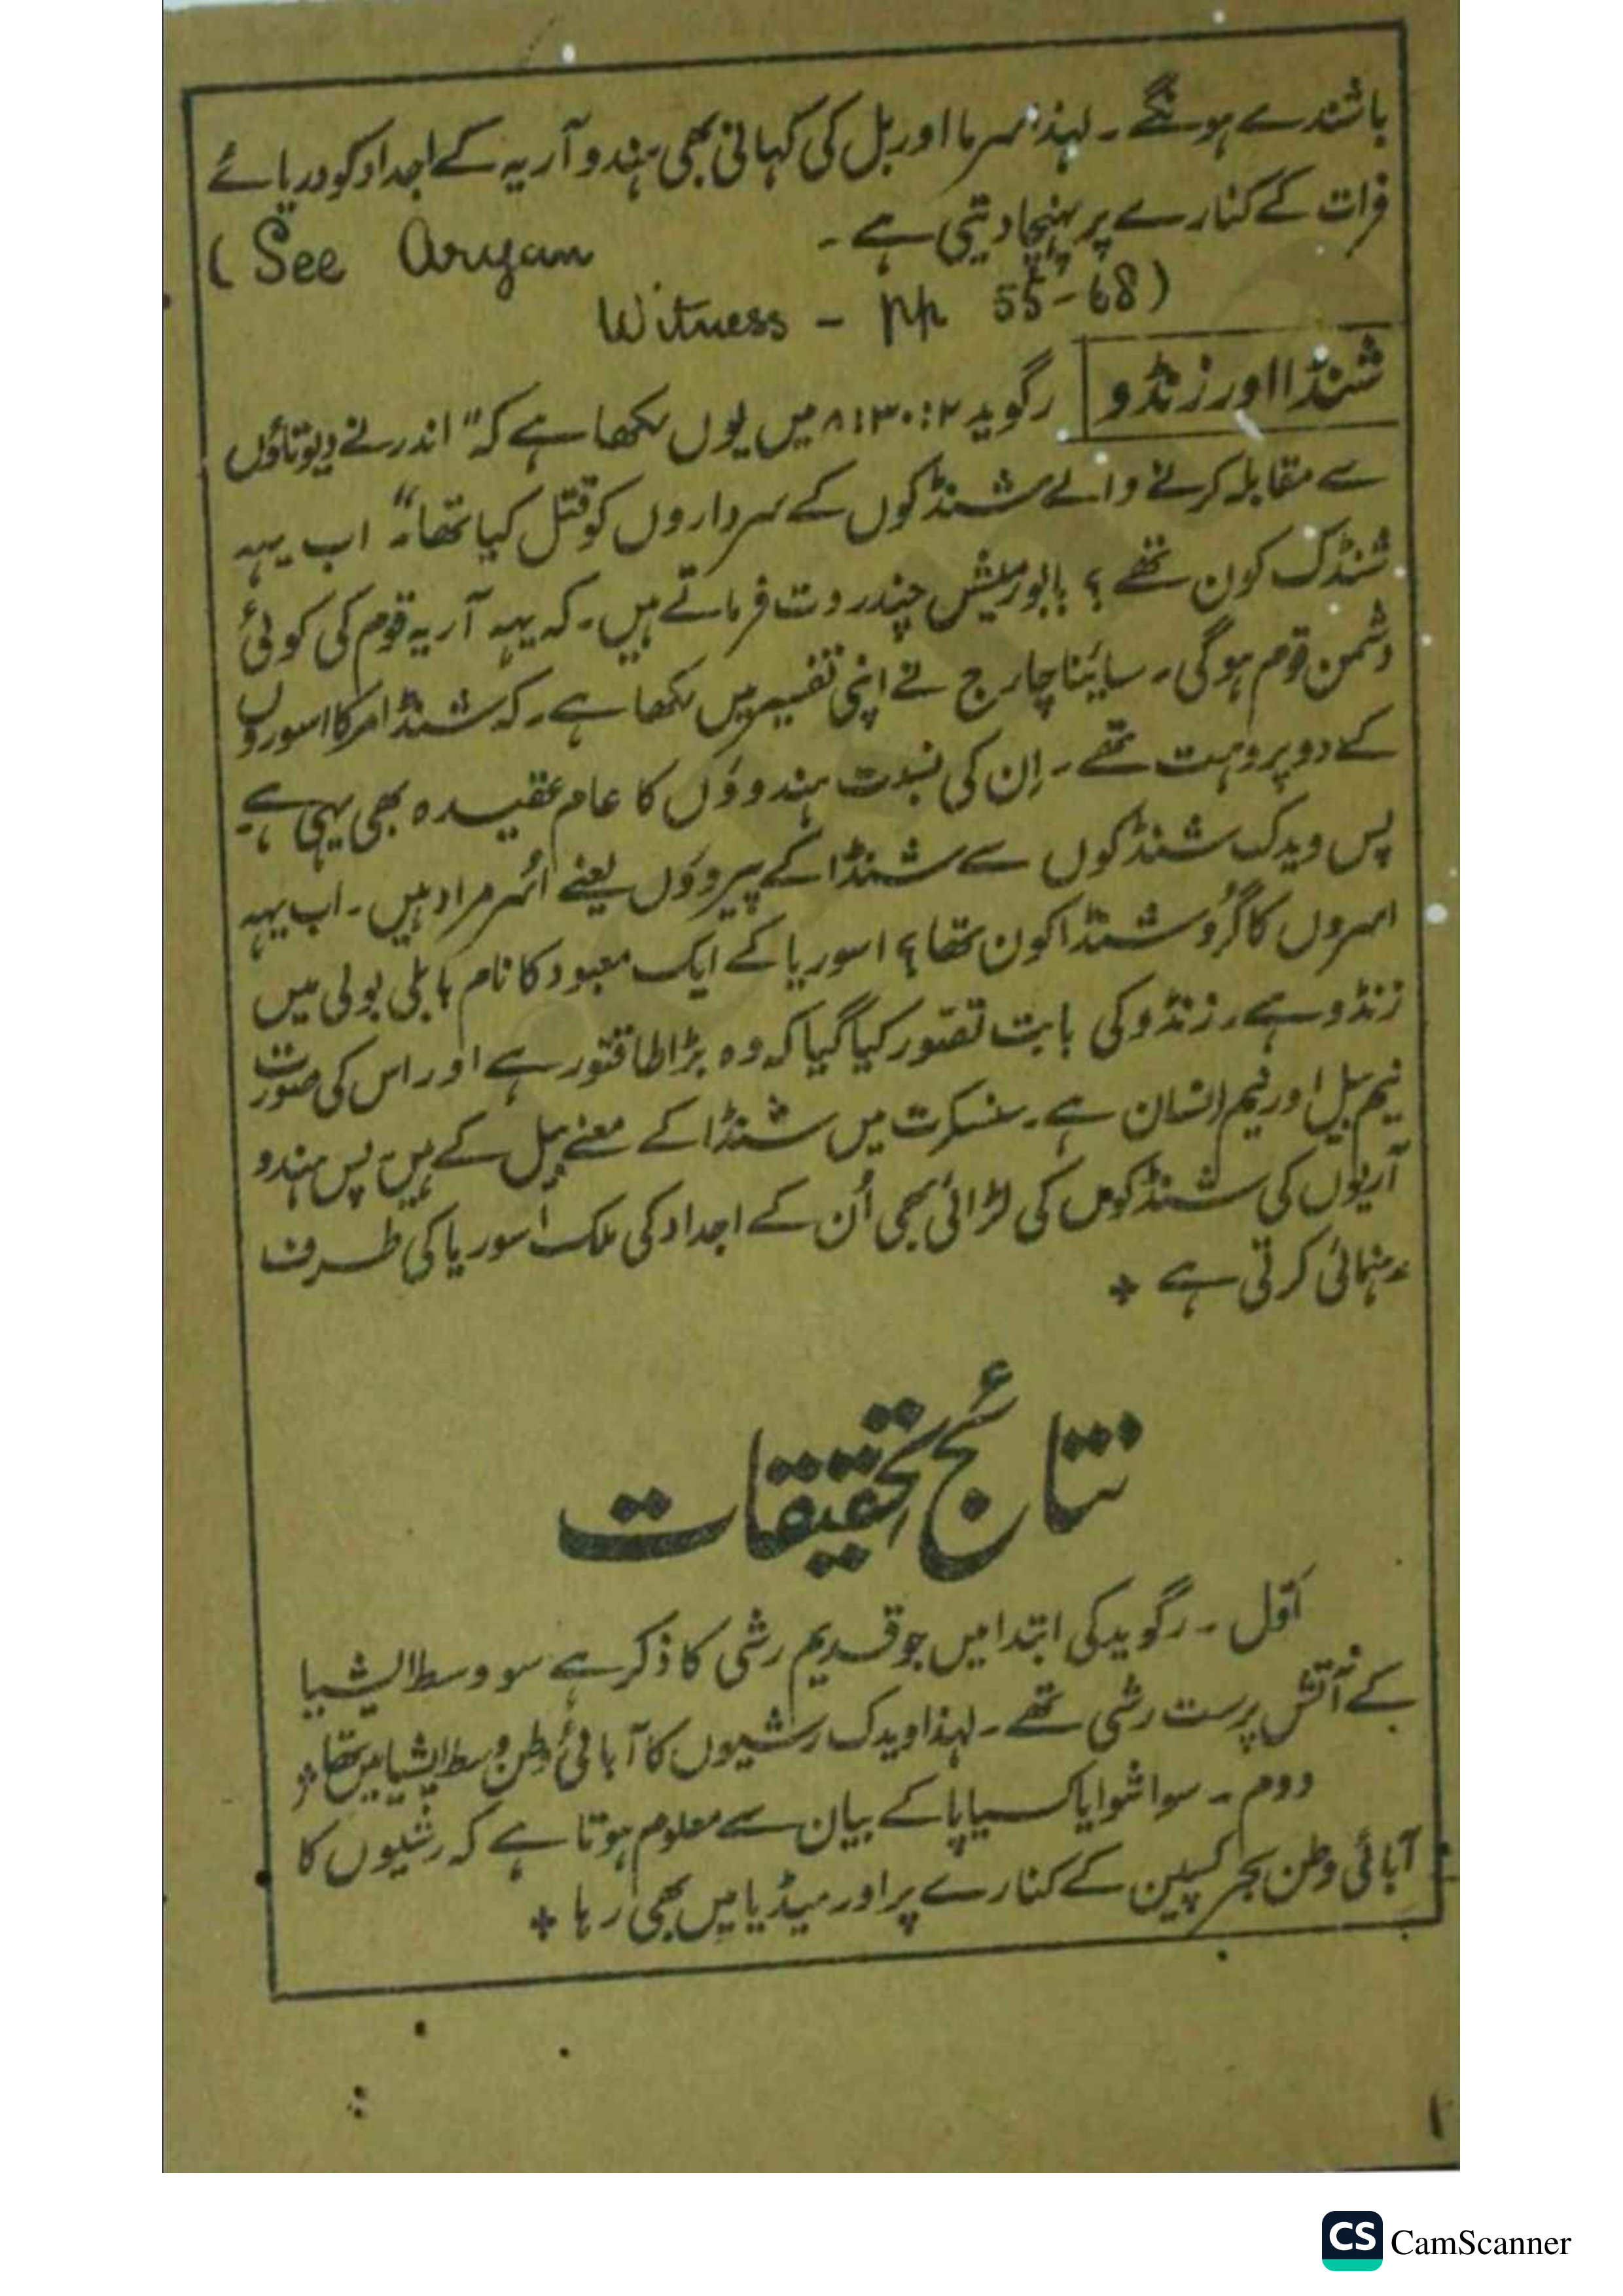 باشندے ہونگے۔ لہذا سرما اور بل کی کہانی بھی ہندو آریہ کے اجداد کو دریائے
فرات کے کنارے پر پہنچا دیتی ہے۔ (See Aryan
Witness - pp 55-68)
شنڈا اور زنڈو رگوید ۲:۳۰:۸ میں یوں لکھا ہے کہ "اندر نے دیوتاؤں
سے مقابلہ کرنے والے شنڈکوں کے سرداروں کو قتل کیا تھا"۔ اب یہہ
شنڈک کون تھے؟ بابو رمیش چندر دت فرماتے ہیں۔ کہ یہہ آریہ قوم کی کوئی
دشمن قوم ہوگی۔ سایناچارج نے اپنی تفسیر میں لکھا ہے۔ کہ شنڈا مرکا اسوروں
کے دو پروہت تھے۔ اِن کی نسبت ہندوؤں کا عام عقیدہ بھی یہی ہے۔
پس ویدک شنڈکوں سے شنڈا کے پیروؤں یعنے اسُر مراد ہیں۔ اب یہہ
اسروں کا گرُو شنڈا کون تھا؟ اسوریا کے ایک معبود کا نام بابلی بولی میں
زنڈو ہے۔ زنڈو کی بابت تصّور کیا گیا کہ وہ بڑا طاقتور ہے اور اس کی صورت
نیم بیل اور نیم انسان ہے۔ سنسکرت میں شنڈا کے معنے بیل کے ہیں۔ پس ہندو
آریوں کی شنڈکوں کی لڑائی بھی اُن کے اجداد کی ملک اسوریا کی طرف
رہنمائی کرتی ہے ٭
نتائج تحقیقات
اَوّل۔ رگوید کی ابتدا میں جو قدیم رشی کا ذکر ہے سو وسط ایشیا
کے آتش پرست رشی تھے۔ لہذا ویدک رشیوں کا آبائی وطن وسط ایشیا میں تھا ٭
دوم۔ سواشوا یا کسیاپا کے بیان سے معلوم ہوتا ہے کہ رشیوں کا
آبائی وطن بحر کسپین کے کنارے پر اور میڈیا میں بھی رہا ٭
۱
CS CamScanner